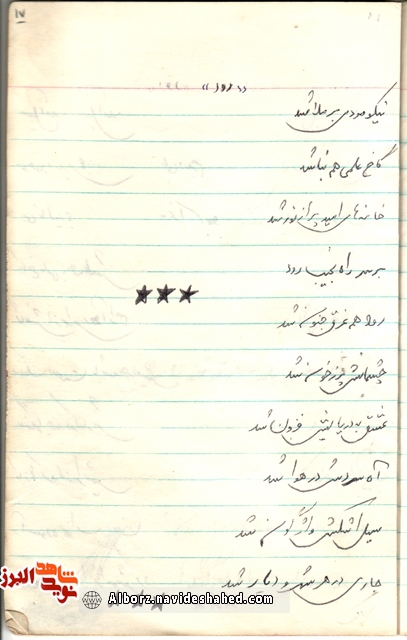 ۱۷
نیکو مردی بر ملا شد
کاخ علمی هم بنا شد
خانه های امید پر از نور شد
بر سر راه نجیب رود
رود هم غرق جنون شد
چشمانش پر ز خون شد
عشق به دریایش فزون شد
آه سردش در هوا شد
سیل اشکش واژگون شد
جاری در هر شهر و دیار شد
نوید شاهد البرز
Alborz.navideshahed.com